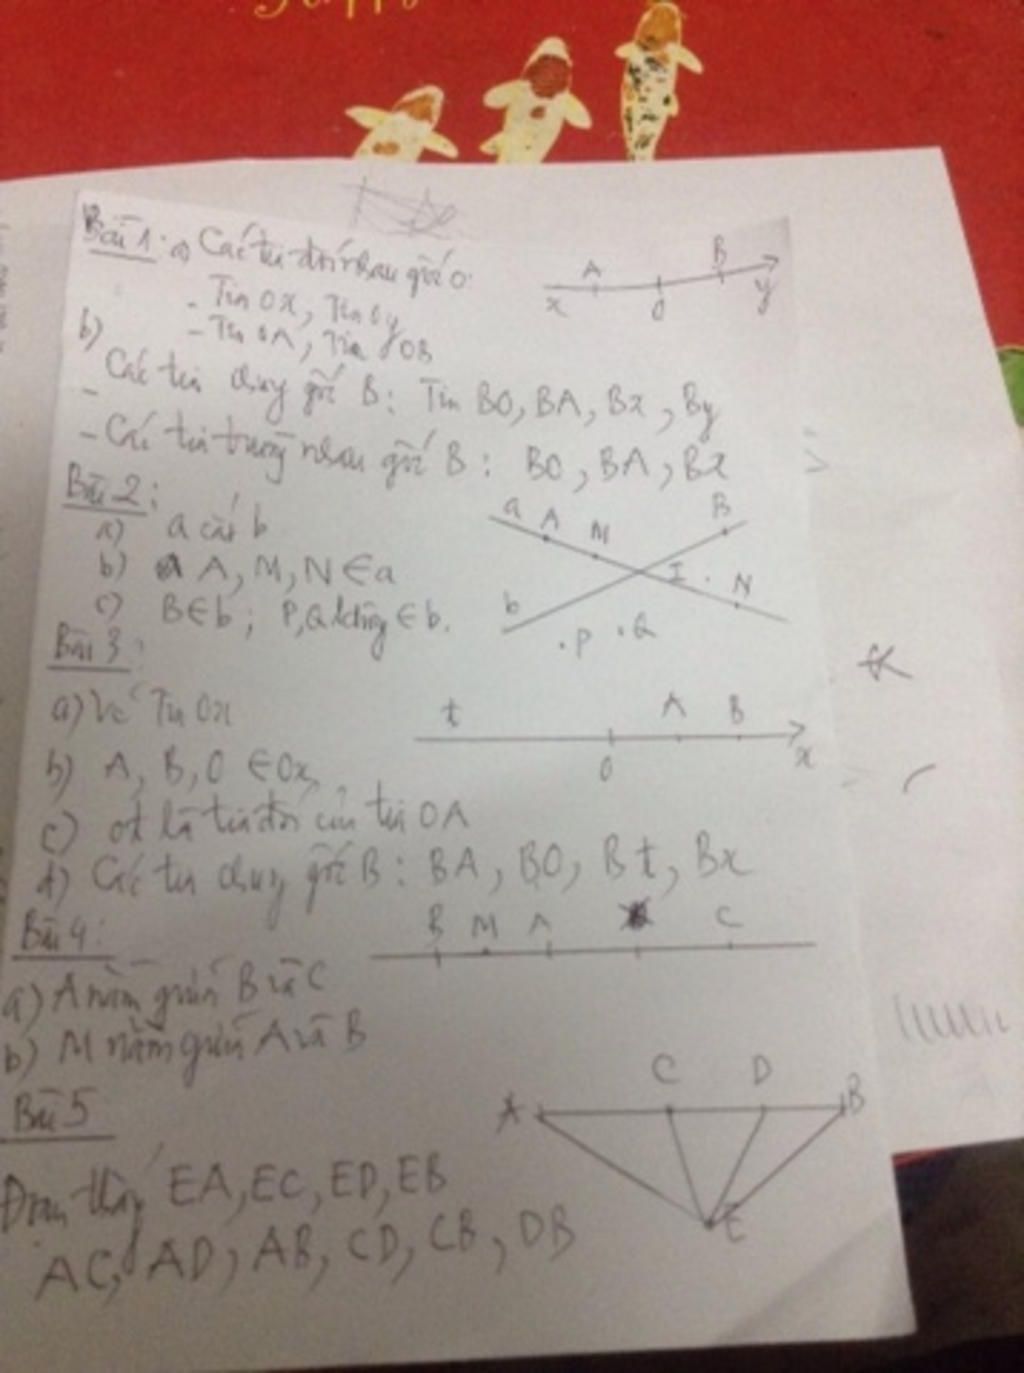 Bài 1: a) Các tia đối nhau gốc O.
- Tia Ox, Tia Oy
- Tia OA, Tia OB
A B x O y
b)
- Các tia chung gốc B: Tia BO, BA, Bx, By
- Các tia trùng nhau gốc B: BO, BA, Bx
Bài 2:
a) a cắt b
b) A, M, N ∈ a
c) B ∈ b; P, Q không ∈ b.
a A M B
I N
b P Q
Bài 3:
a) Vẽ Tia Ox
t A B
O x
b) A, B, O ∈ Ox
c) Ot là tia đối của tia OA
d) Các tia chung gốc B: BA, BO, Bt, Bx
Bài 4:
B M A C
a) A nằm giữa B và C
b) M nằm giữa A và B
Bài 5
A C D B
E
Đoạn thẳng EA, EC, ED, EB
AC, AD, AB, CD, CB, DB